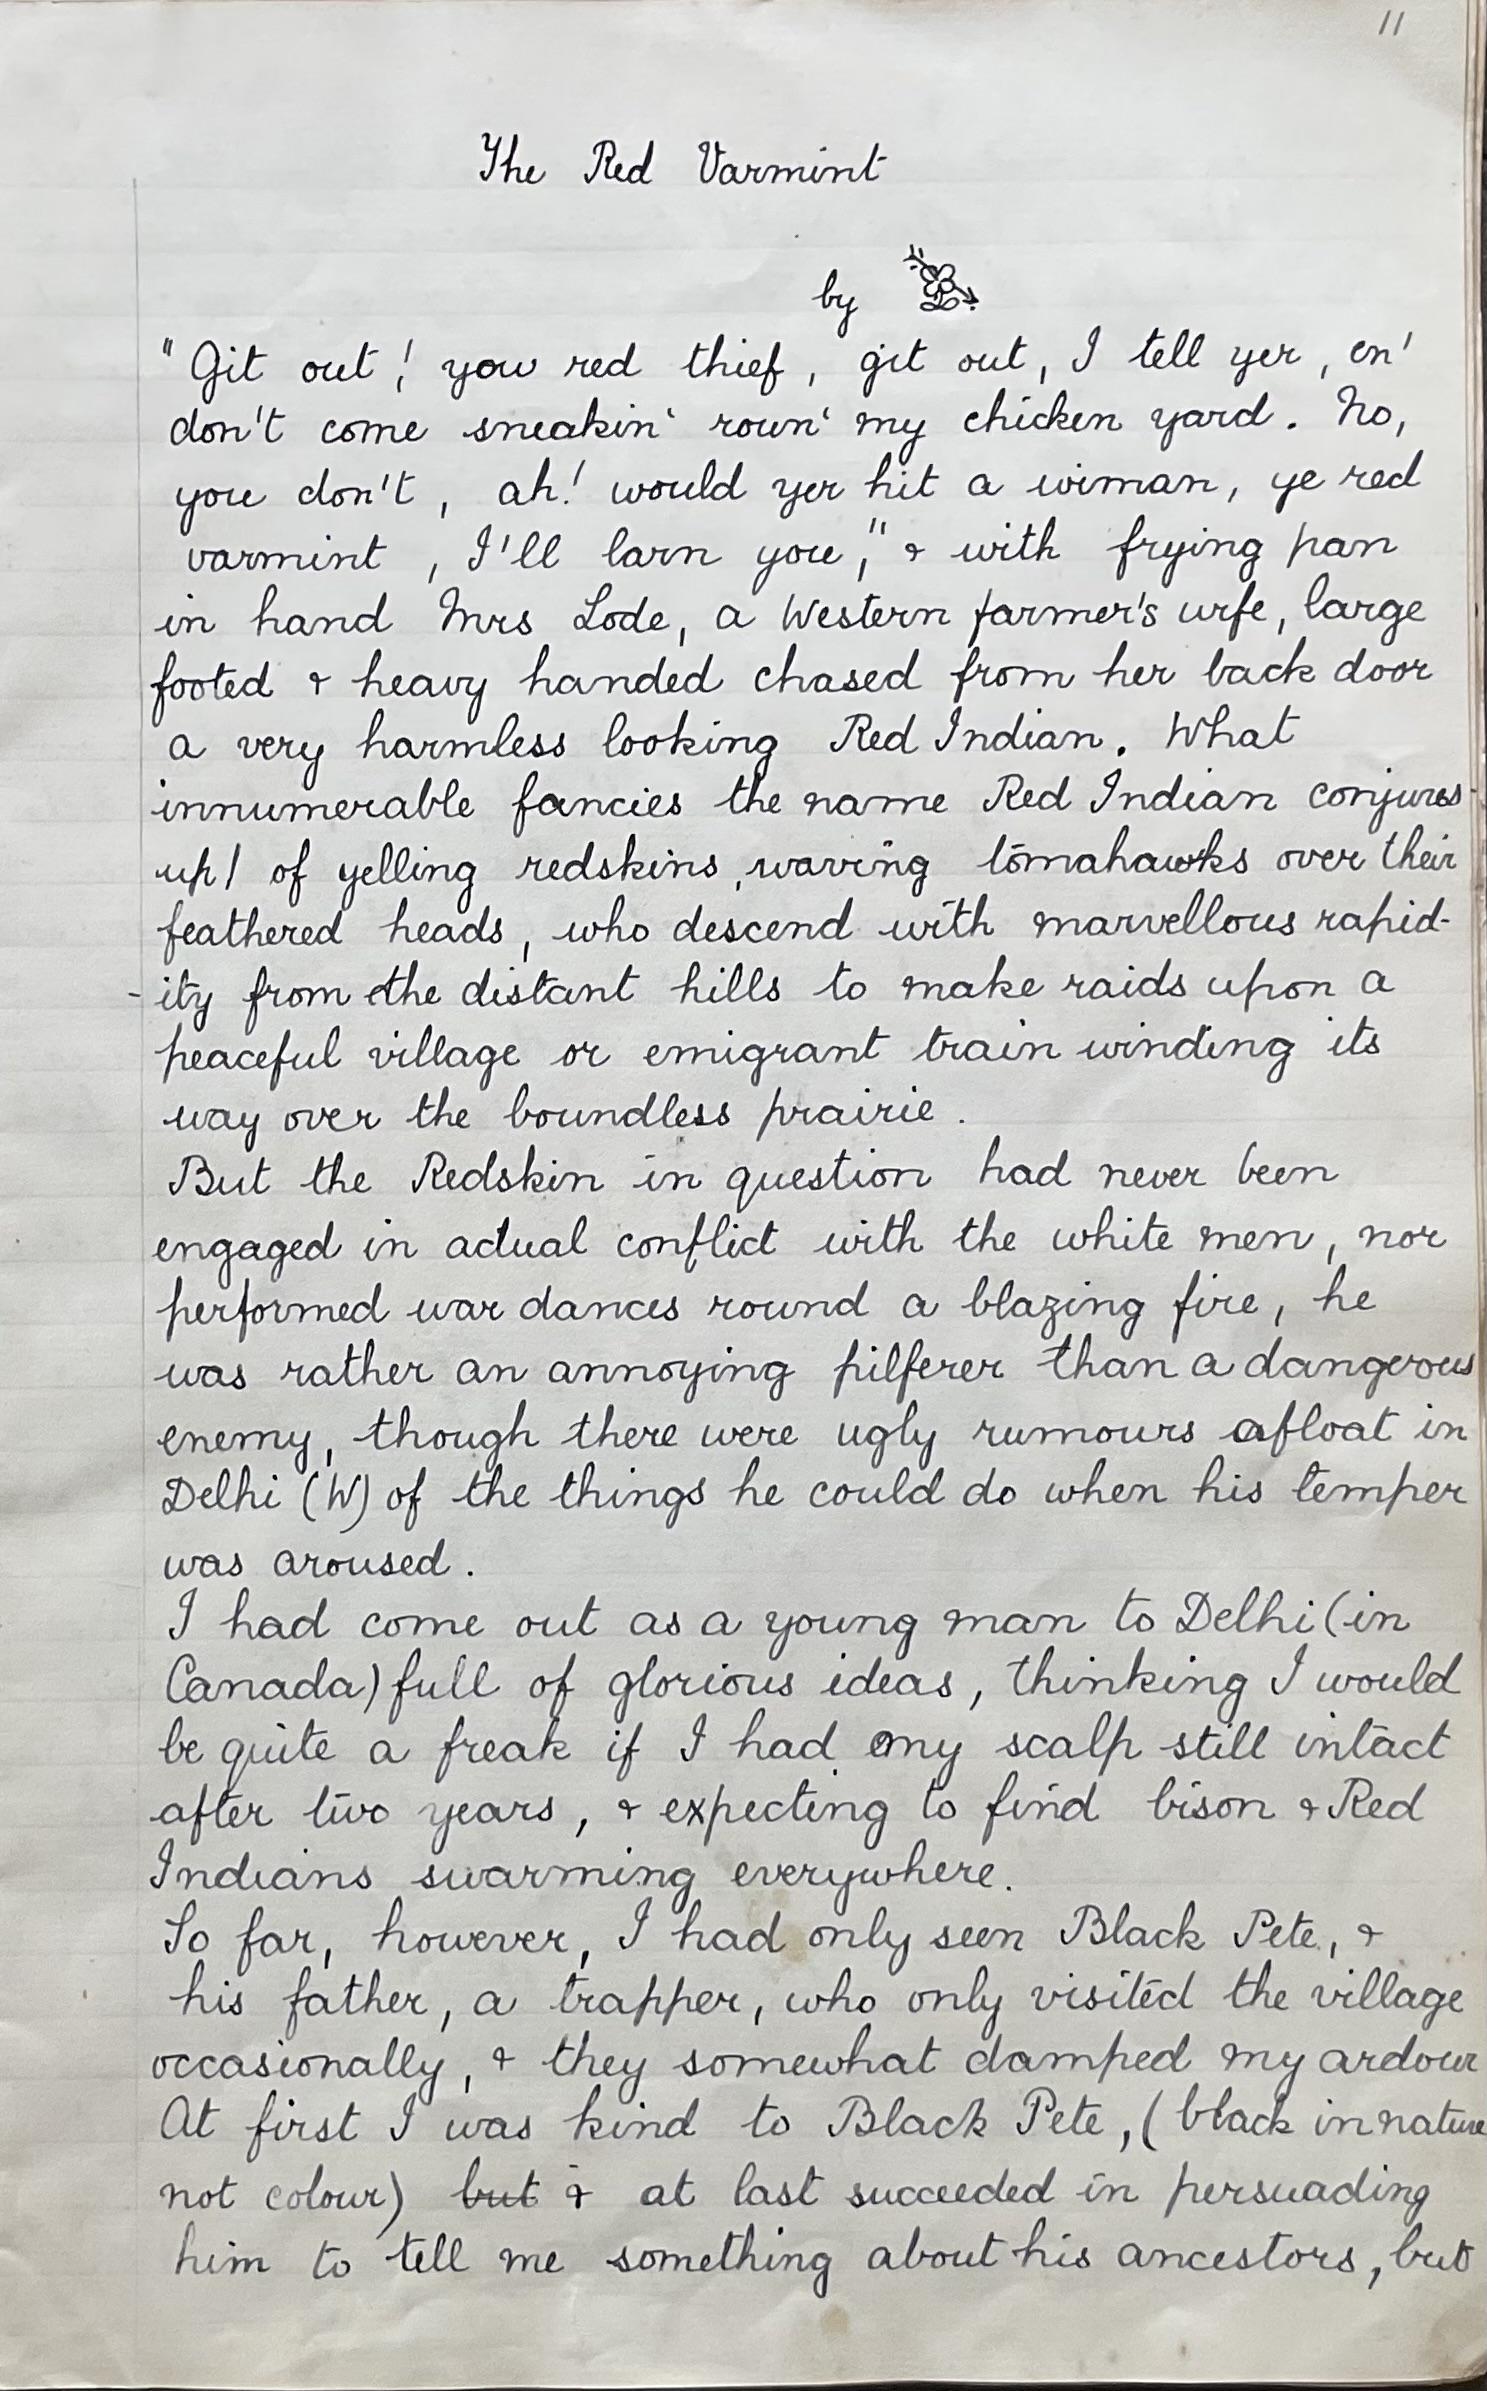 11
The Red Varmint
by
"Git out! you red thief, git out, I tell yer, en'
don't come sneakin' roun' my chicken yard. No,
you don't, ah! would yer hit a wiman, ye red
varmint, I'll larn you," & with frying pan
in hand Mrs Lode, a Western farmer's wife, large
footed & heavy handed chased from her back door
a very harmless looking Red Indian. What
innumerable fancies the name Red Indian conjures
up! of yelling redskins, waving tomahawks over their
feathered heads, who descend with marvellous rapid-
-ity from the distant hills to make raids upon a
peaceful village or emigrant train winding its
way over the boundless prairie.
But the Redskin in question had never been
engaged in actual conflict with the white men, nor
performed war dances round a blazing fire, he
was rather an annoying pilferer than a dangerous
enemy, though there were ugly rumours afloat in
Delhi (W) of the things he could do when his temper
was aroused.
I had come out as a young man to Delhi (in
Canada) full of glorious ideas, thinking I would
be quite a freak if I had my scalp still intact
after two years, & expecting to find bison & Red
Indians swarming everywhere.
So far, however, I had only seen Black Pete, &
his father, a trapper, who only visited the village
occasionally, & they somewhat damped my ardour
At first I was kind to Black Pete, (black in nature
not colour) but & at last succeeded in persuading
him to tell me something about his ancestors, but